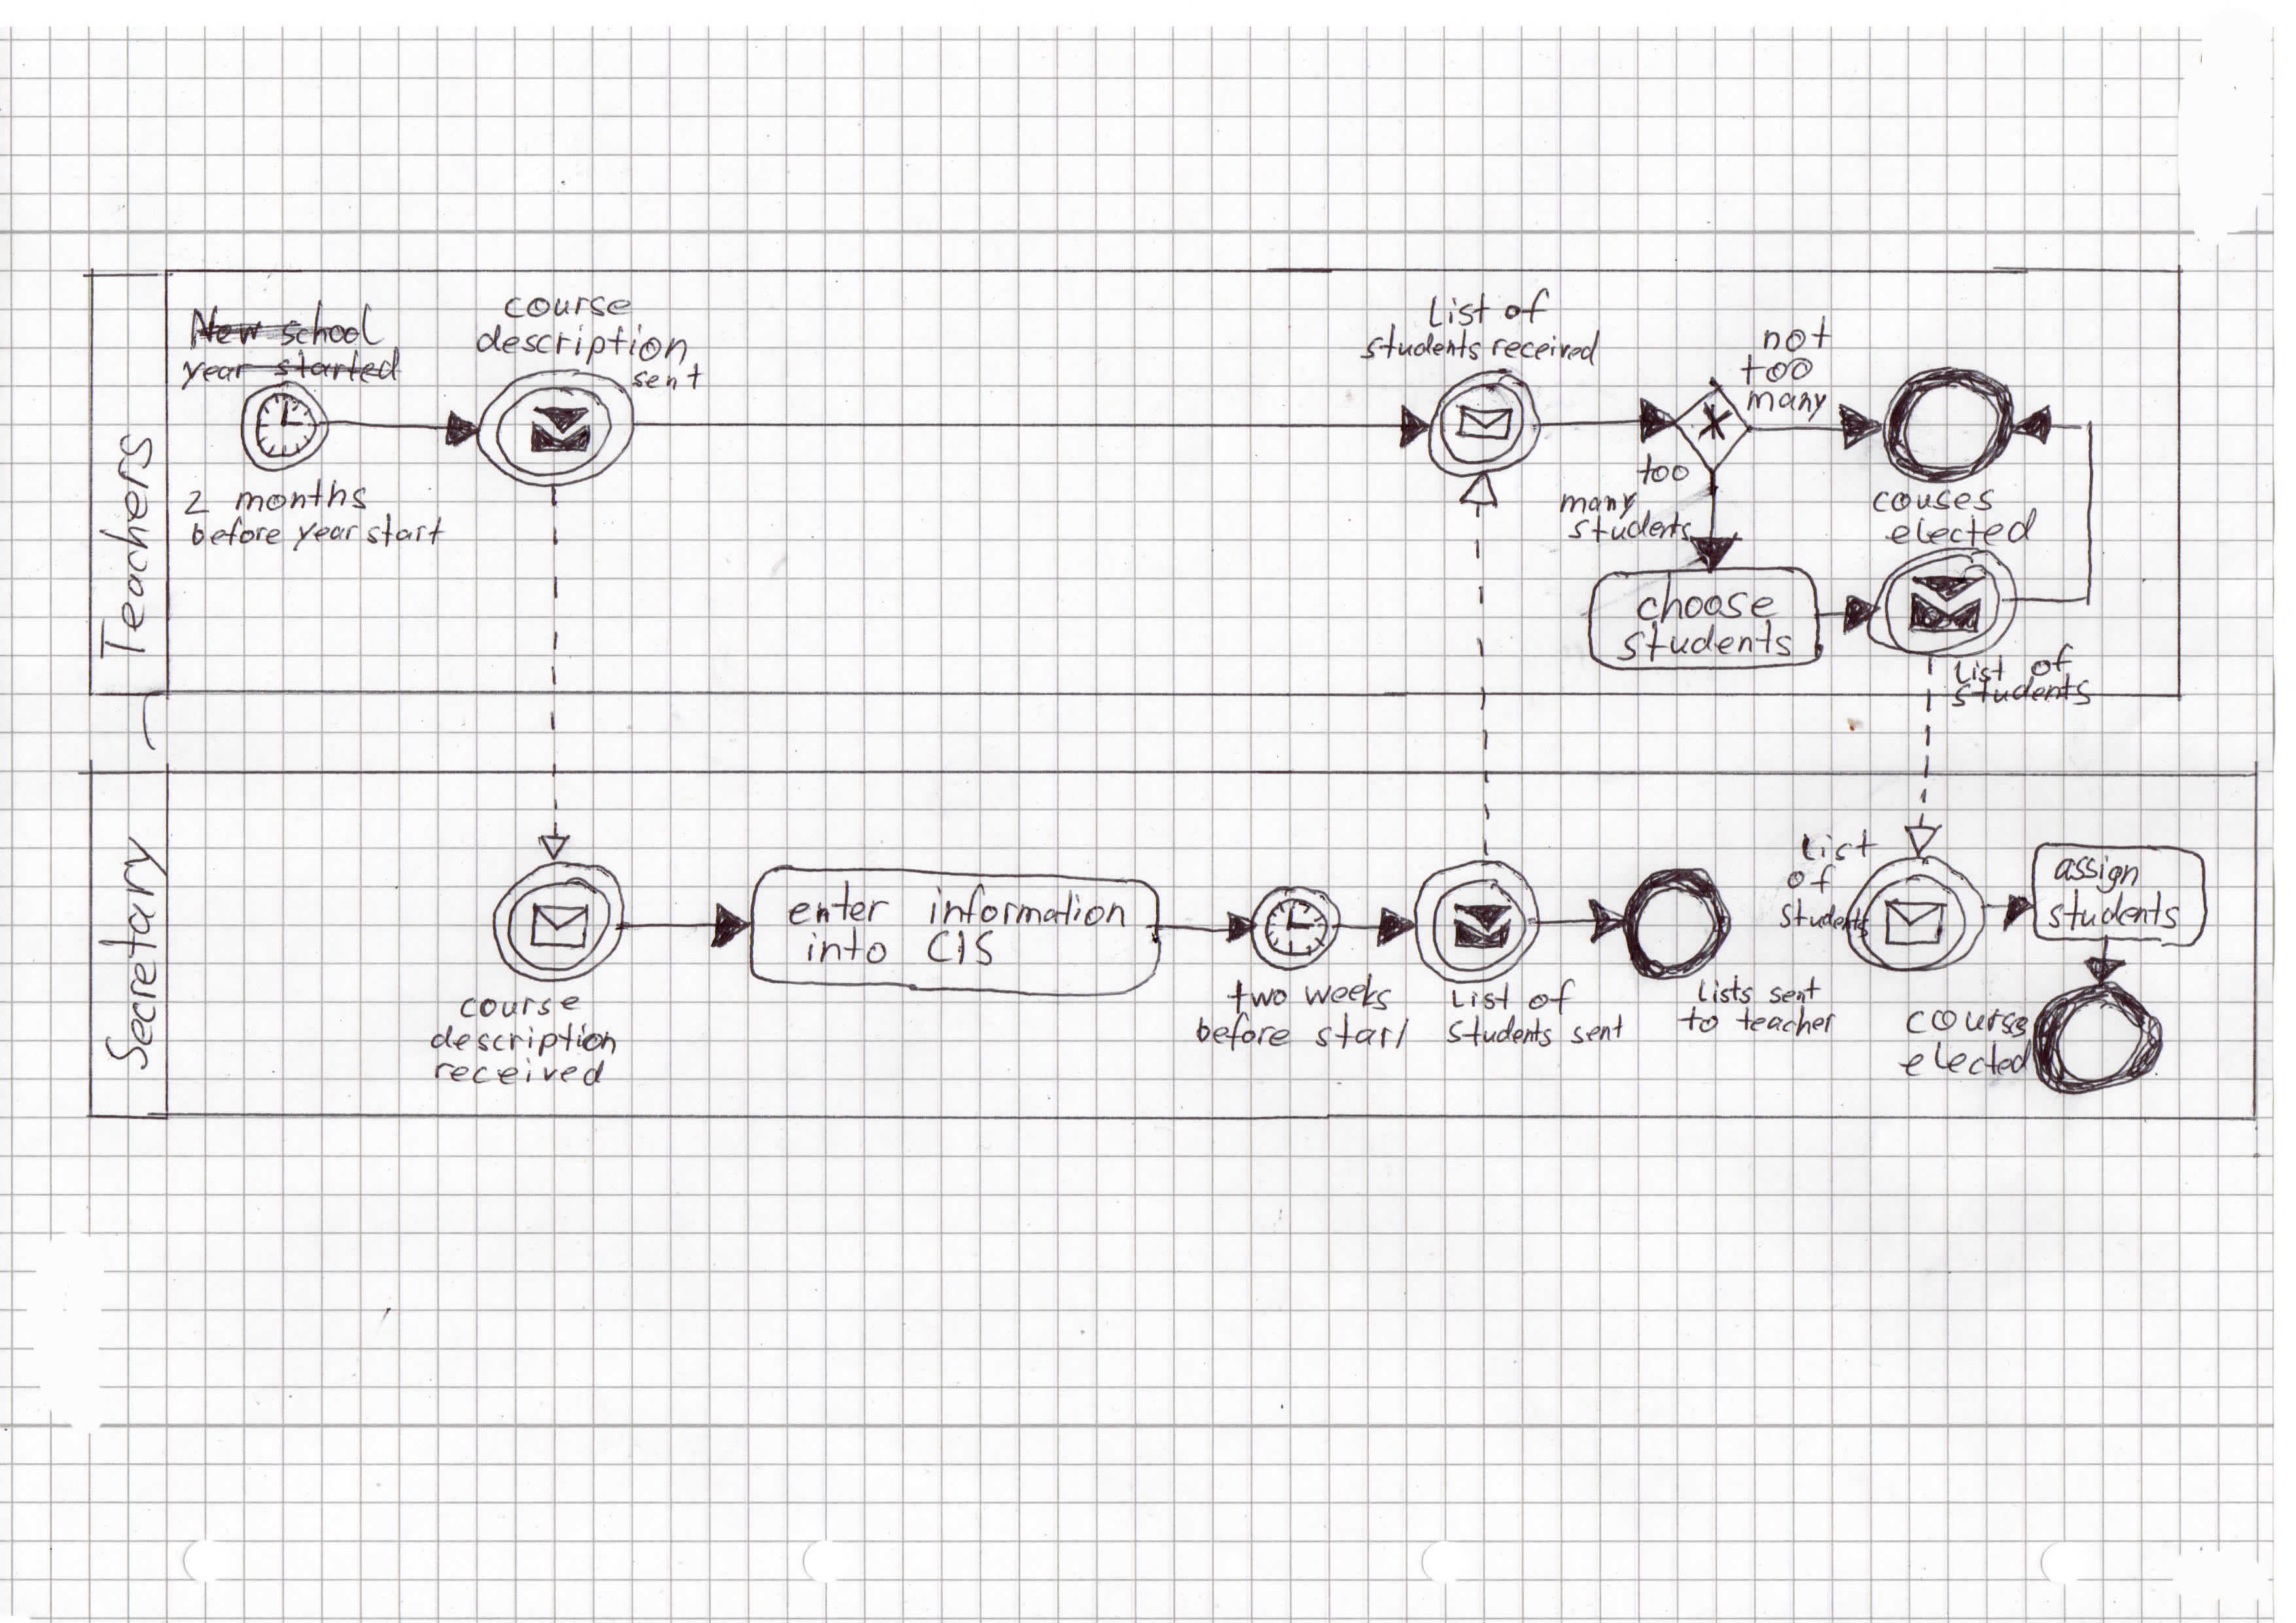 Teachers
New school
year started
2 months
before year start
course
description
sent
List of
students received
not
too
many
too
many
students
choose
students
couses
elected
List of
students
Secretary
course
description
received
enter information
into CIS
two weeks
before start
List of
students sent
Lists sent
to teacher
List
of
students
assign
students
course
elected